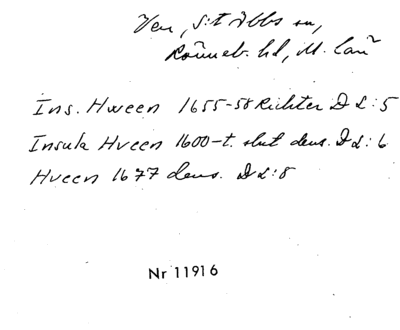 Ven, S:t Ibbs sn,
Rönneb. hd, M. län
Ins. Hween 1655-58 Richter D L:5
Insula Hveen 1600-t. slut dens. D L:6
Hveen 1677 dens. D L:8
Nr 11916